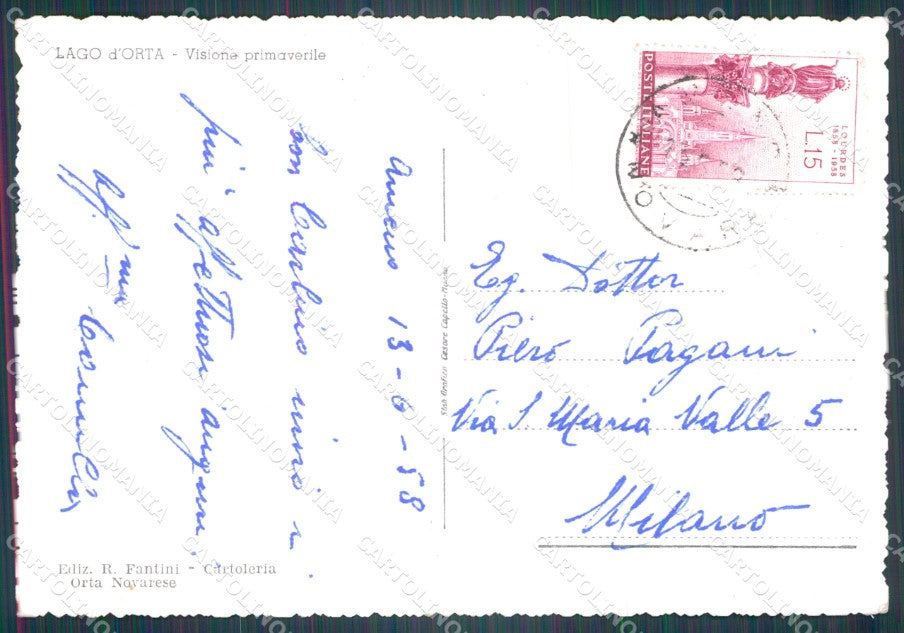 LAGO d'ORTA - Visione primaverile
POSTE ITALIANE
LOURDES
1858-1958
L.15
Ameno 13-6-58
Con
miei i
più affettuosi auguri.
aff.ma
Stab. Grafico Cesare Capello-Milano
Eg. Dottor
Piero Pagani
Via S. Maria Valle 5
Milano
Ediz. R. Fantini - Cartoleria
Orta Novarese
CARTOLINOMANIA